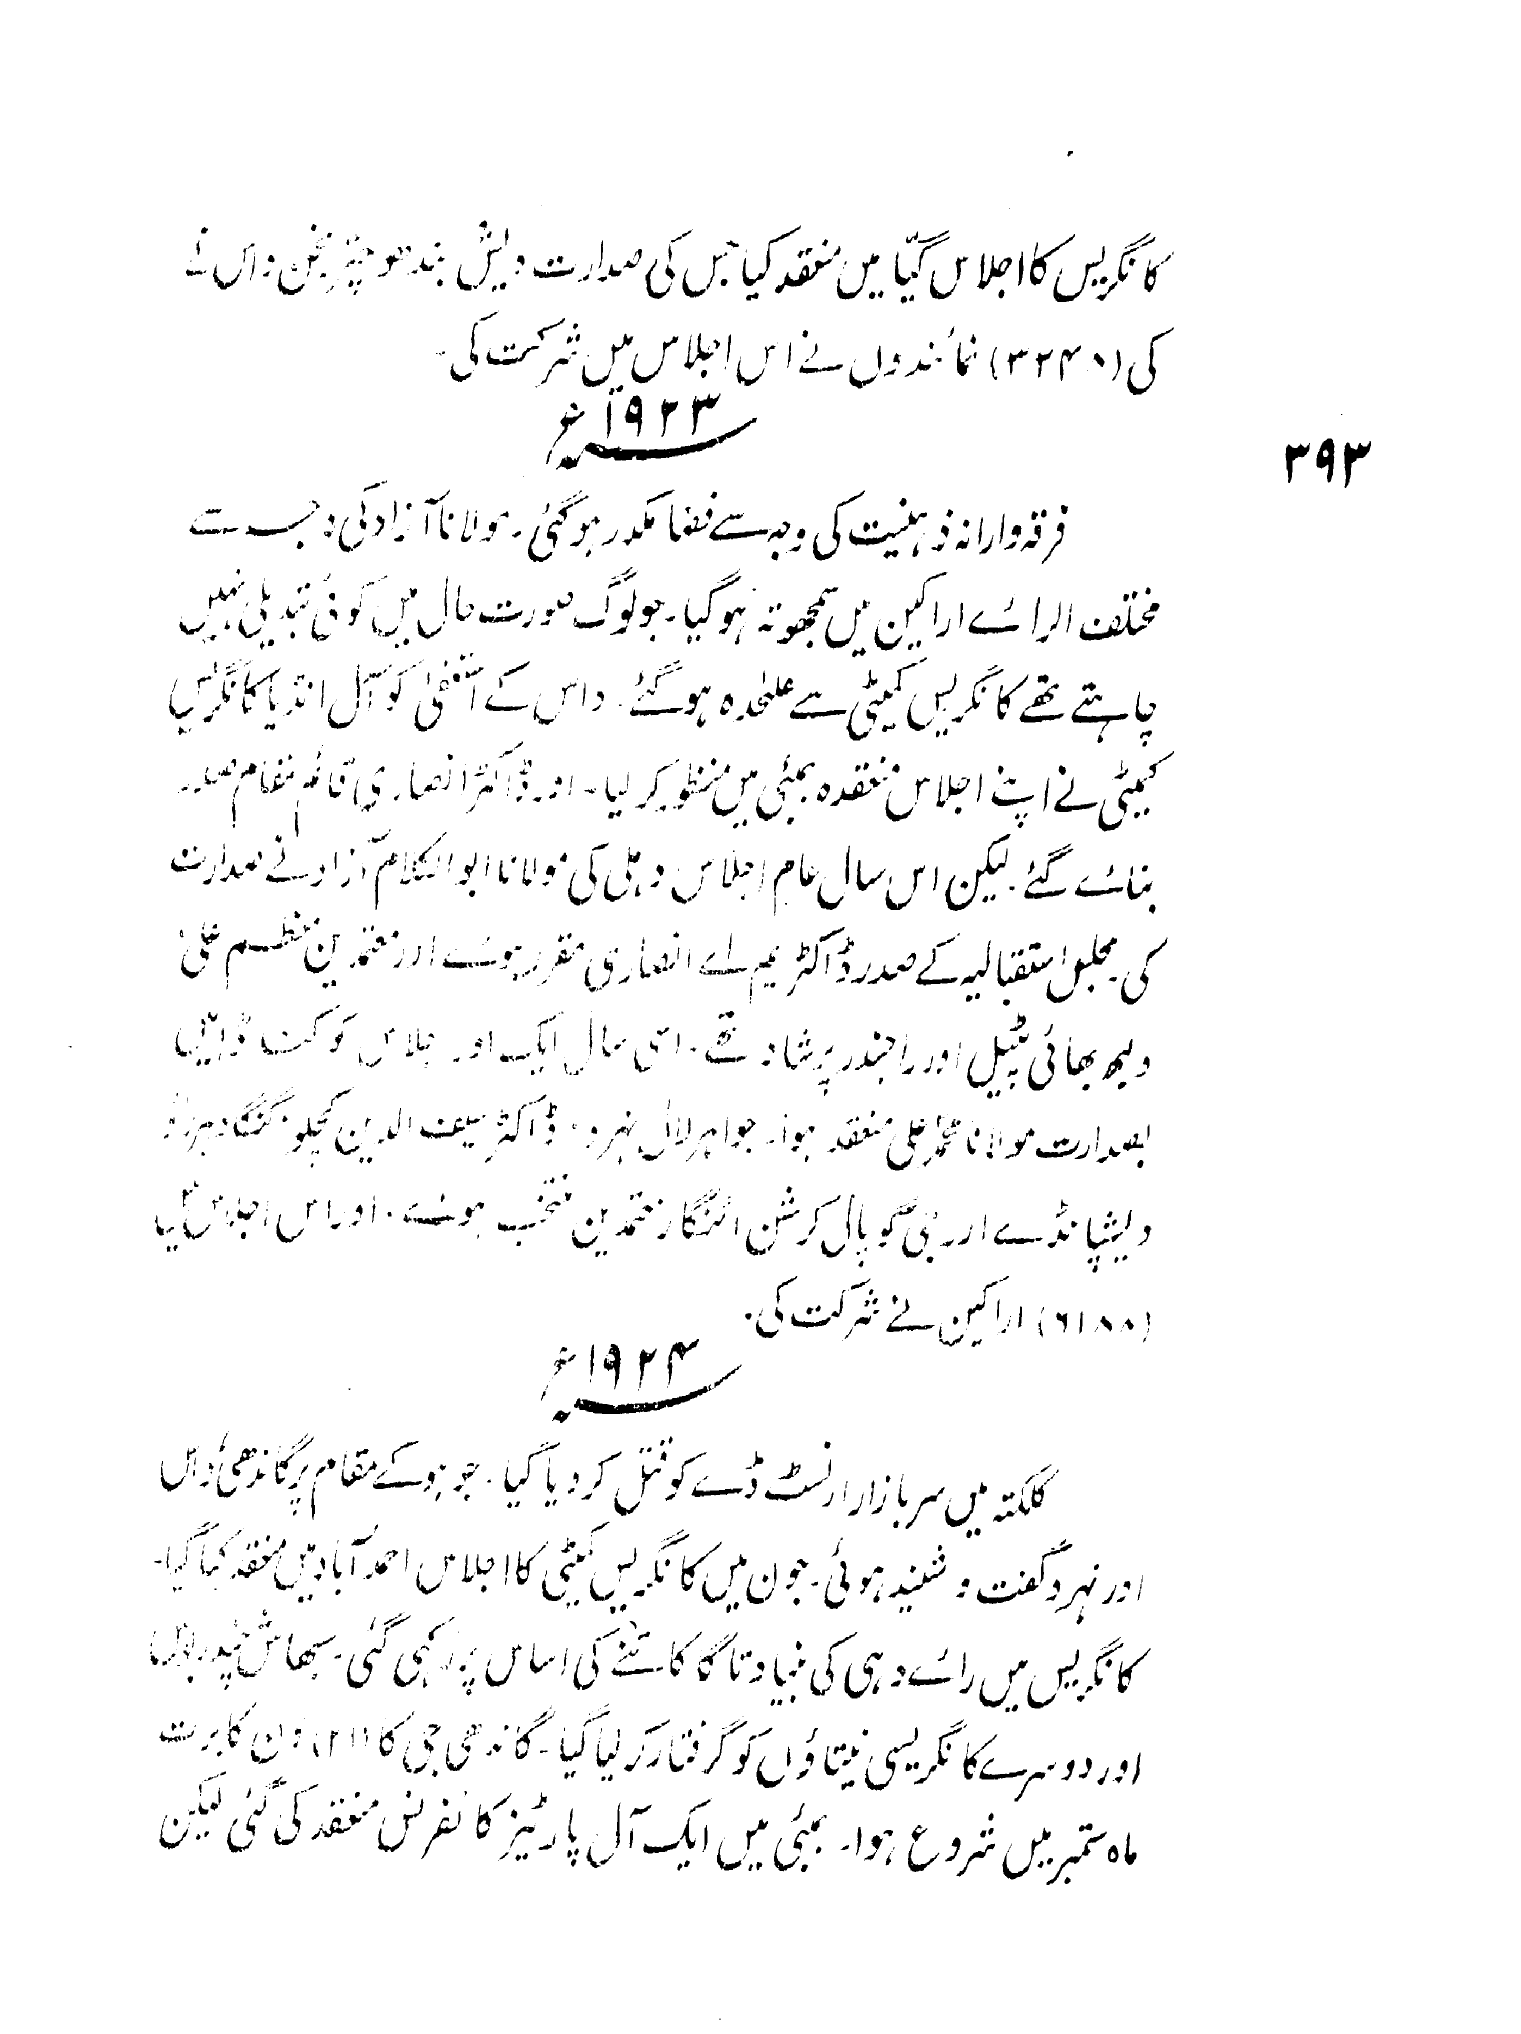 کانگریس کا اجلاس گیّا میں منعقد کیا جس کی صدارت دیش بندھو چترنجن داس نے
کی (۳۲۴۸) نمائندوں نے اس اجلاس میں شرکت کی۔
۱۹۲۳ء
۳۹۳
فرقہ وارانہ ذہنیت کی وجہ سے فضا مکدر ہوگئی۔ مولانا آزاد کی وجہ سے
مختلف الرائے اراکین میں سمجھوتہ ہوگیا۔ جو لوگ صورت حال میں کوئی تبدیلی نہیں
چاہتے تھے کانگریس کمیٹی سے علٰحدہ ہوگئے۔ داس کے استعفیٰ کو آل انڈیا کانگریس
کمیٹی نے اپنے اجلاس منعقدہ بمبئی میں منظور کر لیا۔ اور ڈاکٹر انصاری قائم مقام صدر
بنائے گئے۔ لیکن اس سال عام اجلاس دہلی کی مولانا ابوالکلام آزاد نے صدارت
کی۔ مجلس استقبالیہ کے صدر ڈاکٹر یم اے انصاری مقرر ہوئے اور معتمدین معظم علی
ولبھ بھائی پٹیل اور راجندر پرشاد تھے۔ اسی سال ایک اور اجلاس کوکناڈا میں
بصدارت مولانا محمد علی منعقد ہوا۔ جواہر لال نہرو۔ ڈاکٹر سیف الدین کچلو گنگادہر راؤ
دیشپانڈے اور بی گوپال کرشن ائنگار معتمدین منتخب ہوئے۔ اور اس اجلاس میں
(۶۱۸۸) اراکین نے شرکت کی۔
۱۹۲۴ء
کلکتہ میں سر بازار ارنسٹ ڈے کو قتل کر دیا گیا۔ جوہو کے مقام پر گاندھی داس
اور نہرو گفت و شنید ہوئی۔ جون میں کانگریس کمیٹی کا اجلاس احمد آباد میں منعقد کیا گیا۔
کانگریس میں رائے دہی کی بنیاد تاگا کاتنے کی اساس پر رکھی گئی۔ سبھاش چندر بوس
اور دوسرے کانگریسی نیتاؤں کو گرفتار کر لیا گیا۔ گاندھی جی کا (۲۱) دن کا برت
ماہ ستمبر میں شروع ہوا۔ بمبئی میں ایک آل پارٹیز کانفرنس منعقد کی گئی لیکن